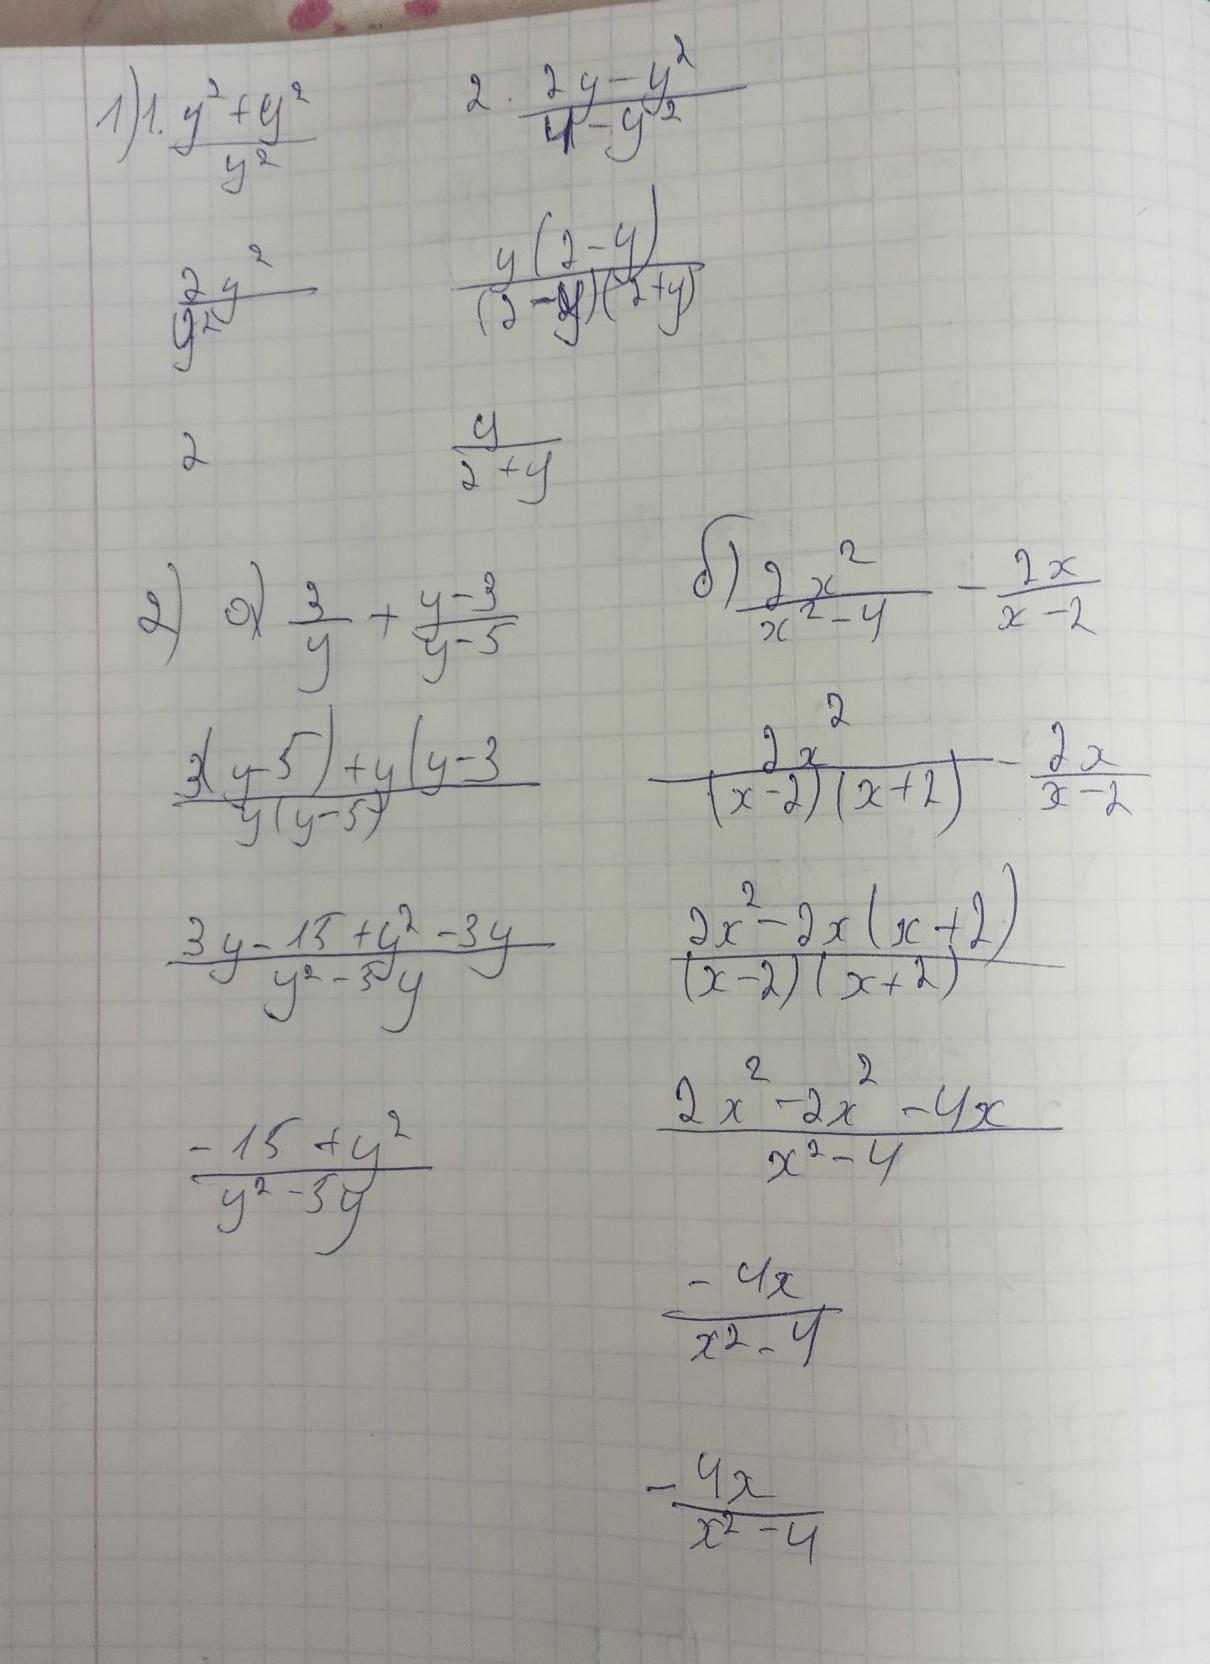 1) 1. (y² + y²)/y²
2y²/y²
2
2. (2y - y²)/(4 - y²)
y(2 - y)/(2 - y)(2 + y)
y/(2 + y)
2) a) 3/y + (y - 3)/(y - 5)
3(y - 5) + y(y - 3/y(y - 5)
(3y - 15 + y² - 3y)/(y² - 5y)
(-15 + y²)/(y² - 5y)
б) 2x²/(x² - 4) - 2x/(x - 2)
2x²/(x - 2)(x + 2) - 2x/(x - 2)
2x² - 2x(x + 2)/(x - 2)(x + 2)
(2x² - 2x² - 4x)/(x² - 4)
-4x/(x2 - 4)
- 4x/(x² - 4)